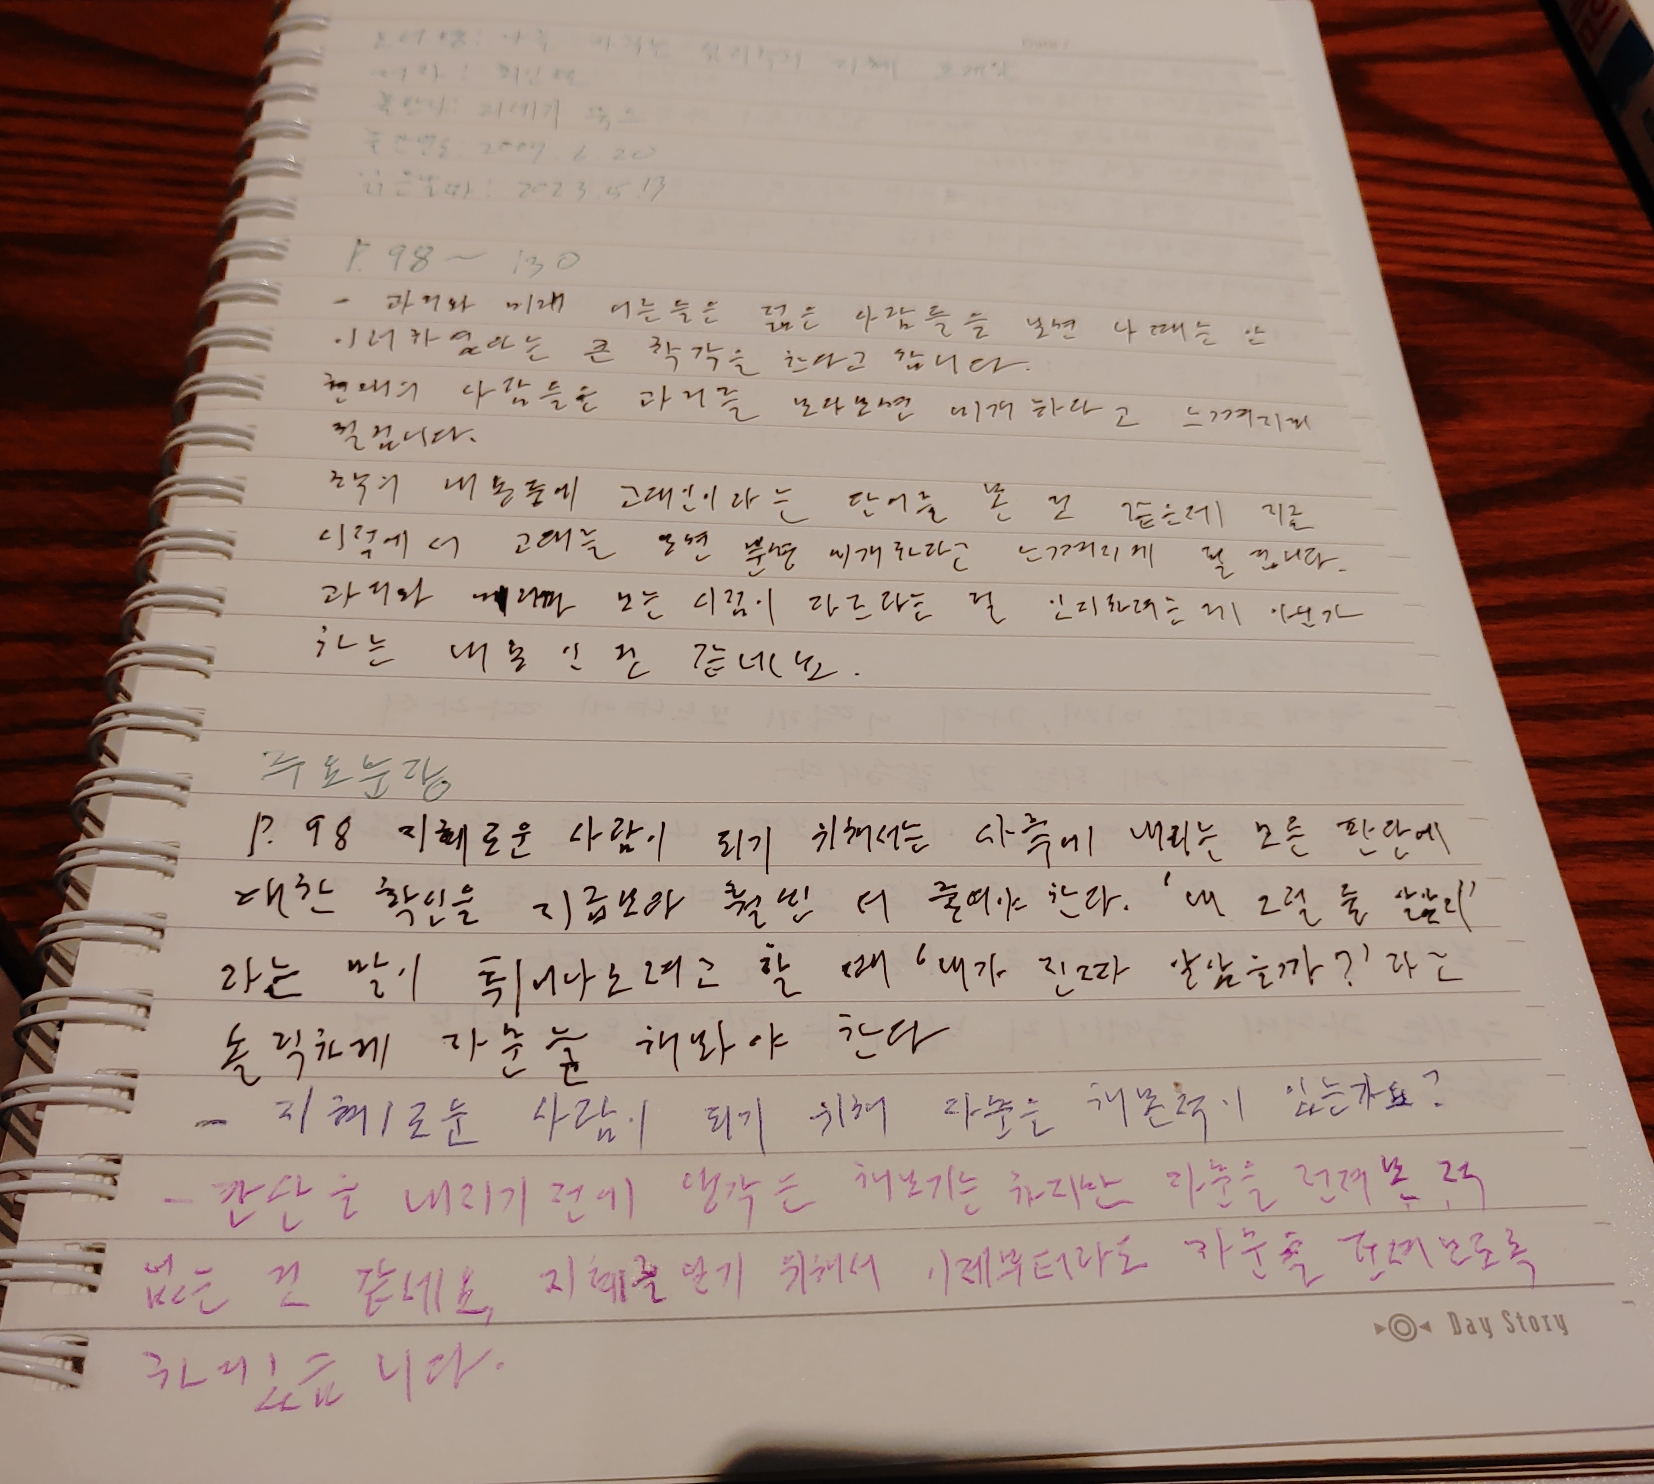 도서명: 나를
저자: 최인철
출판사: 21세기 북스
출간일: 2007. 6. 20
읽은날짜: 2023. 5. 13
P. 98 ~ 130
- 과거와 미래 어른들은 젊은 사람들을 보면 나 때는 안
이러하였다는 큰 착각을 한다고 합니다.
현대의 사람들은 과거를 보다보면 미개하다고 느껴지게
될겁니다.
책의 내용중에 고대인이라는 단어를 본 것 같은데 지금
시점에서 고대를 보면 분명 미개하다고 느껴지게 될 겁니다.
과거와 보는 시점이 다르다는 걸 인지하려는게 아닌가
하는 내용인 것 같네요.
주요문장
P. 98 지혜로운 사람이 되기 위해서는 사후에 내리는 모든 판단에
대한 확신을 지금보다 훨씬 더 줄여야 한다. '내 그럴 줄 알았지'
라는 말이 튀어나오려고 할 때 '내가 진짜 알았을까?' 라고
솔직하게 자문을 해봐야 한다
- 지혜로운 사람이 되기 위해 자문을 해본적이 있는가요?
- 판단을 내리기 전에 생각은 해보기는 하지만 자문을 던져본 적
없는 것 같네요, 지혜를 얻기 위해서 이제부터라도 자문을 던져보도록
하겠습니다.
Day Story